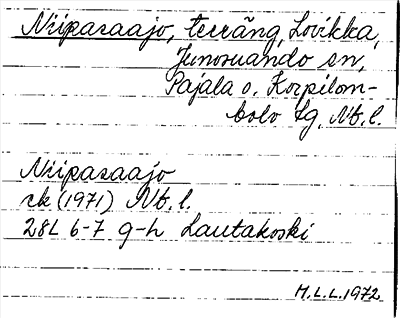 Niipasaajo, terräng, Lovikka,
Junosuando sn,
Pajala o. Korpilom-
bolo tg, Nb. l.
Niipasaajo
rk (1971) Nb. l.
28L 6-7 g-h Lautakoski
M.L.L. 1972